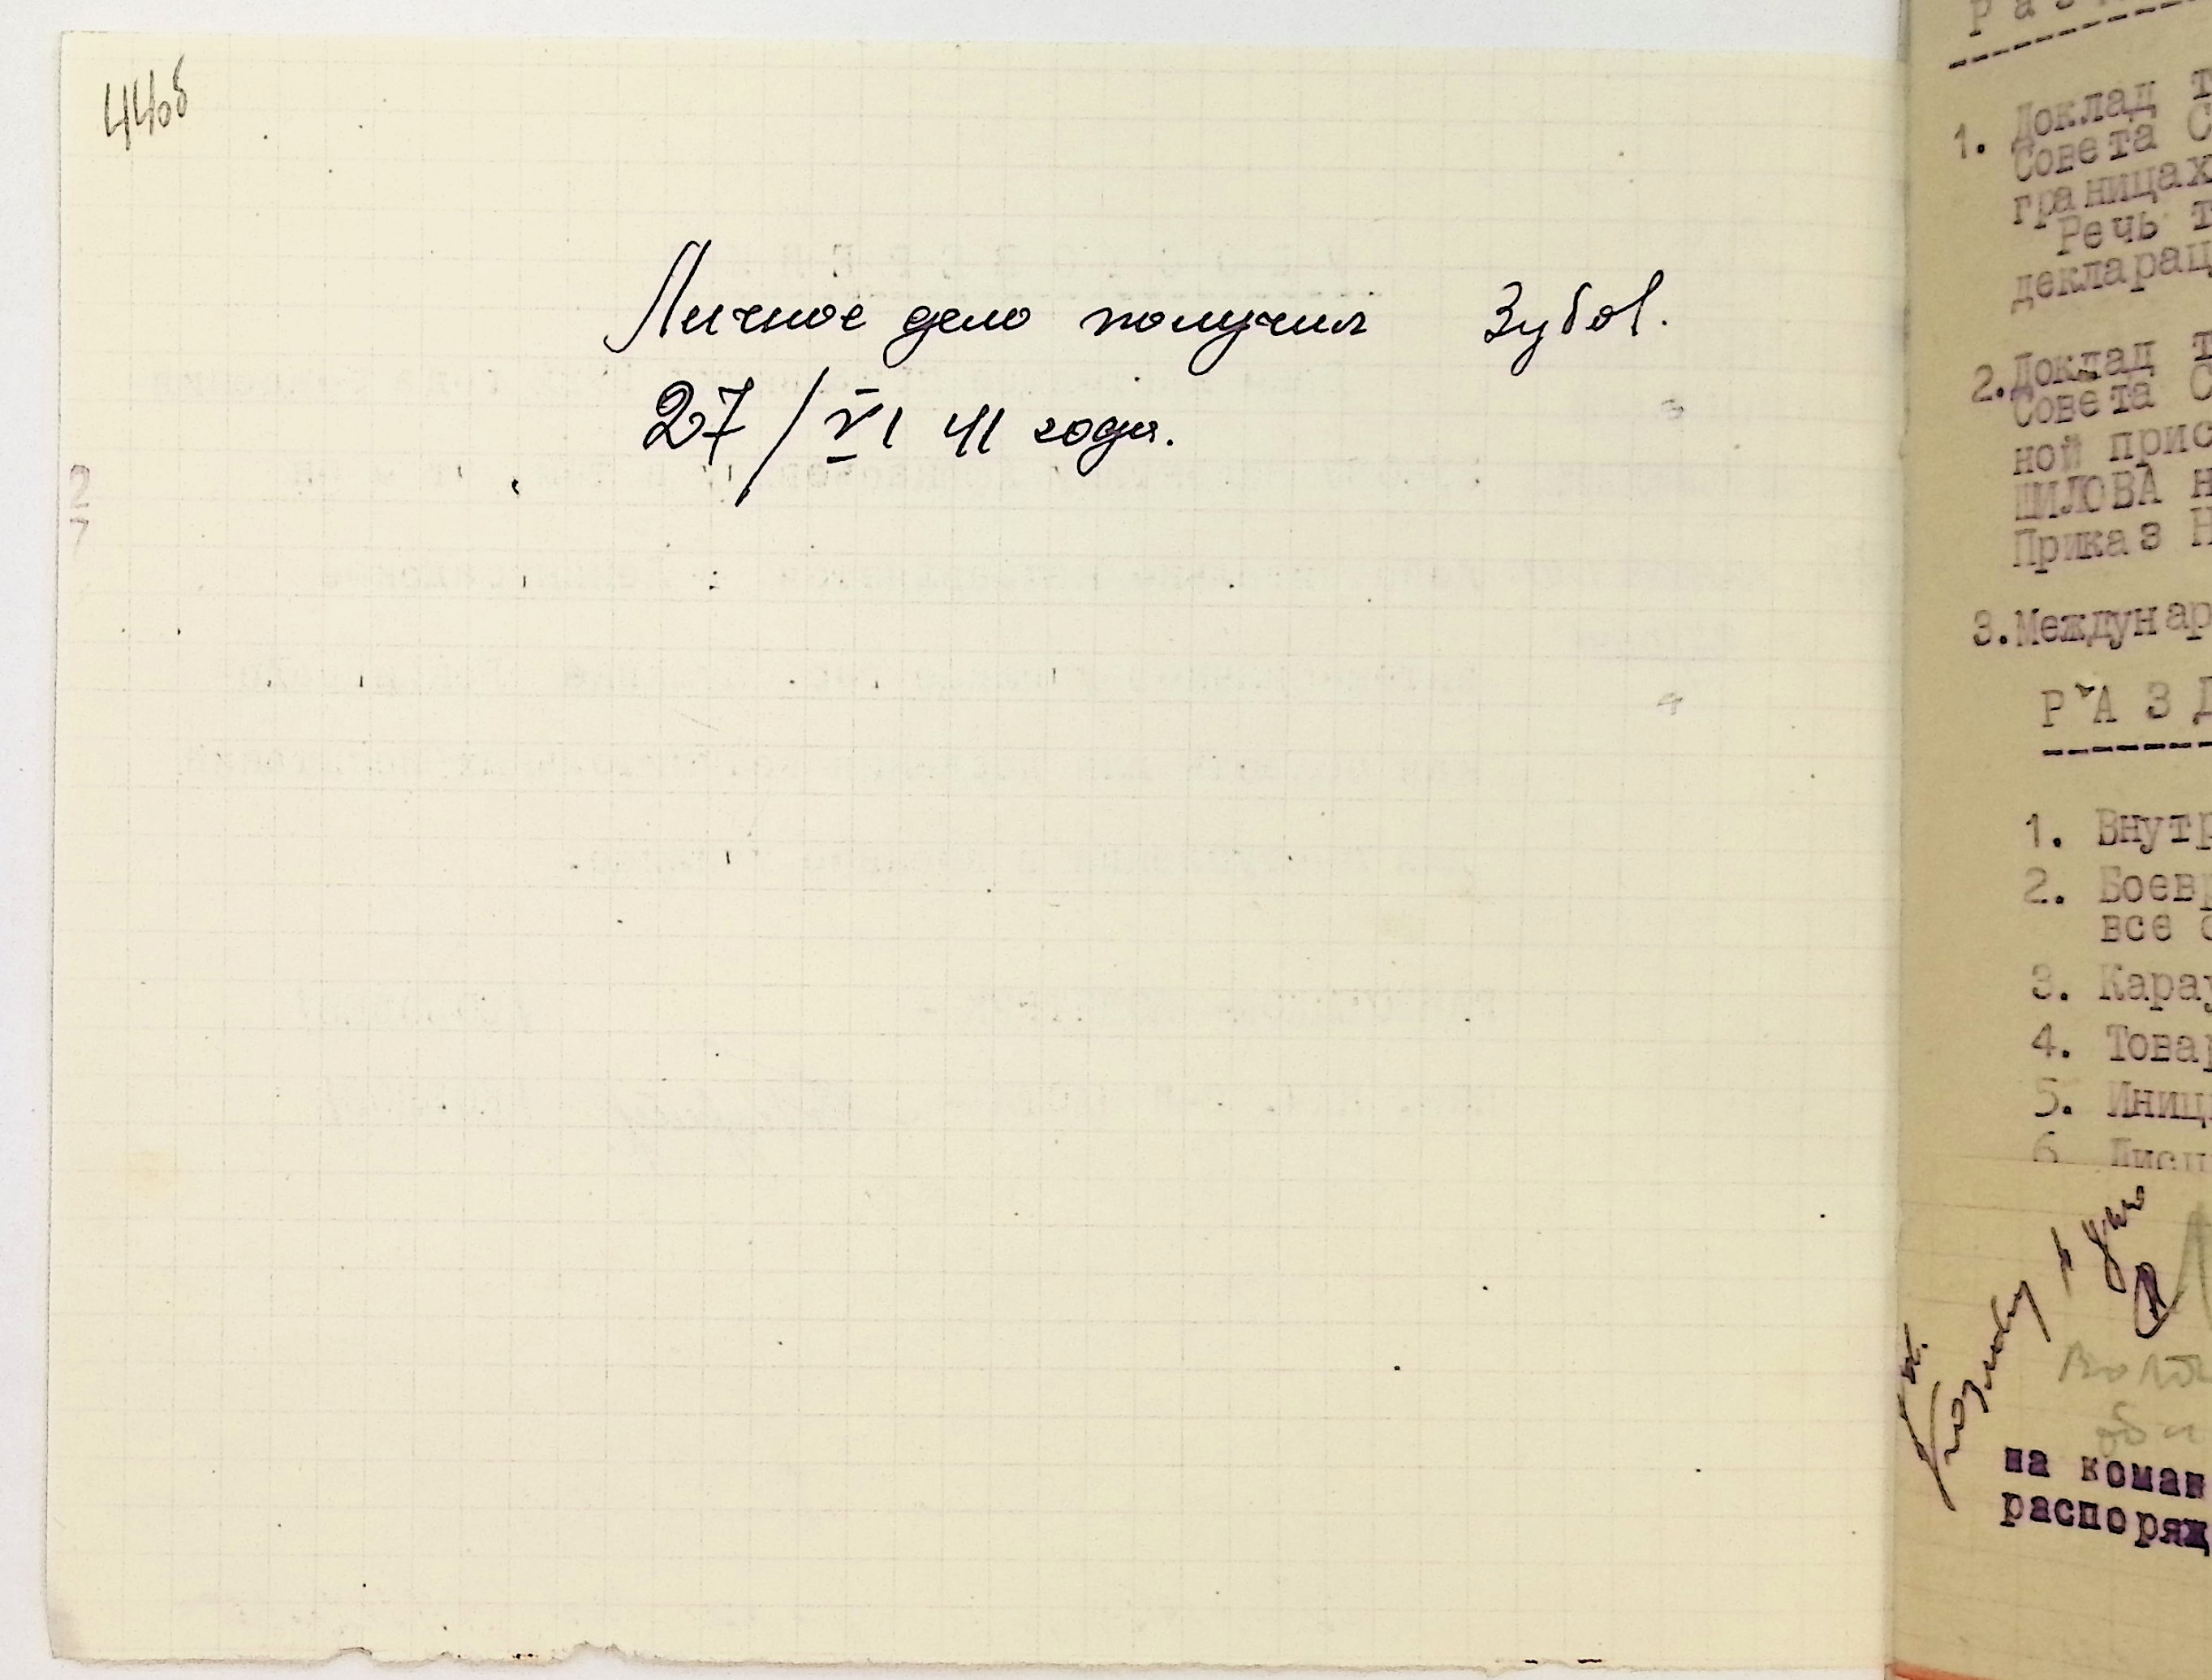 44об
Личное дело получил Зубов.
27/VI 41 года.
2
7
1. Доклад т
Совета С
границах
Речь т
декларац
2. Доклад т
Совета С
ной прис
ШИЛОВА н
Приказ Н
3. Междунар
Р А З Д
1. Внутр
2. Боевр
все с
3. Карау
4. Товар
5. Иници
6 Дисц
на коман
распоряж